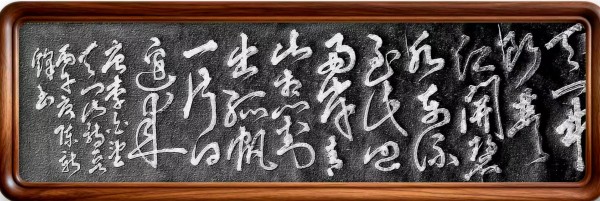 天门中
断楚
江開碧
水东流
至此回
两岸青
山相对
出孤帆
一片日
边来
唐李白望
天门山诗
丙午夏陈新
锋书